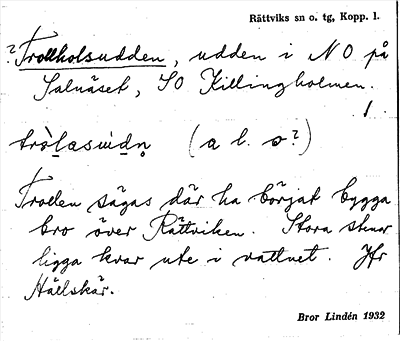 Rättviks sn o. tg, Kopp. l.
?Trollholsudden, udden i NO på
Salnäset, SO Killingholmen.
1.
(a l. ɔ?)
Trollen sägas där ha börjat bygga
bro över Rättviken. Stora stenar
ligga kvar ute i vattnet. Jfr
Hällskär.
Bror Lindén 1932